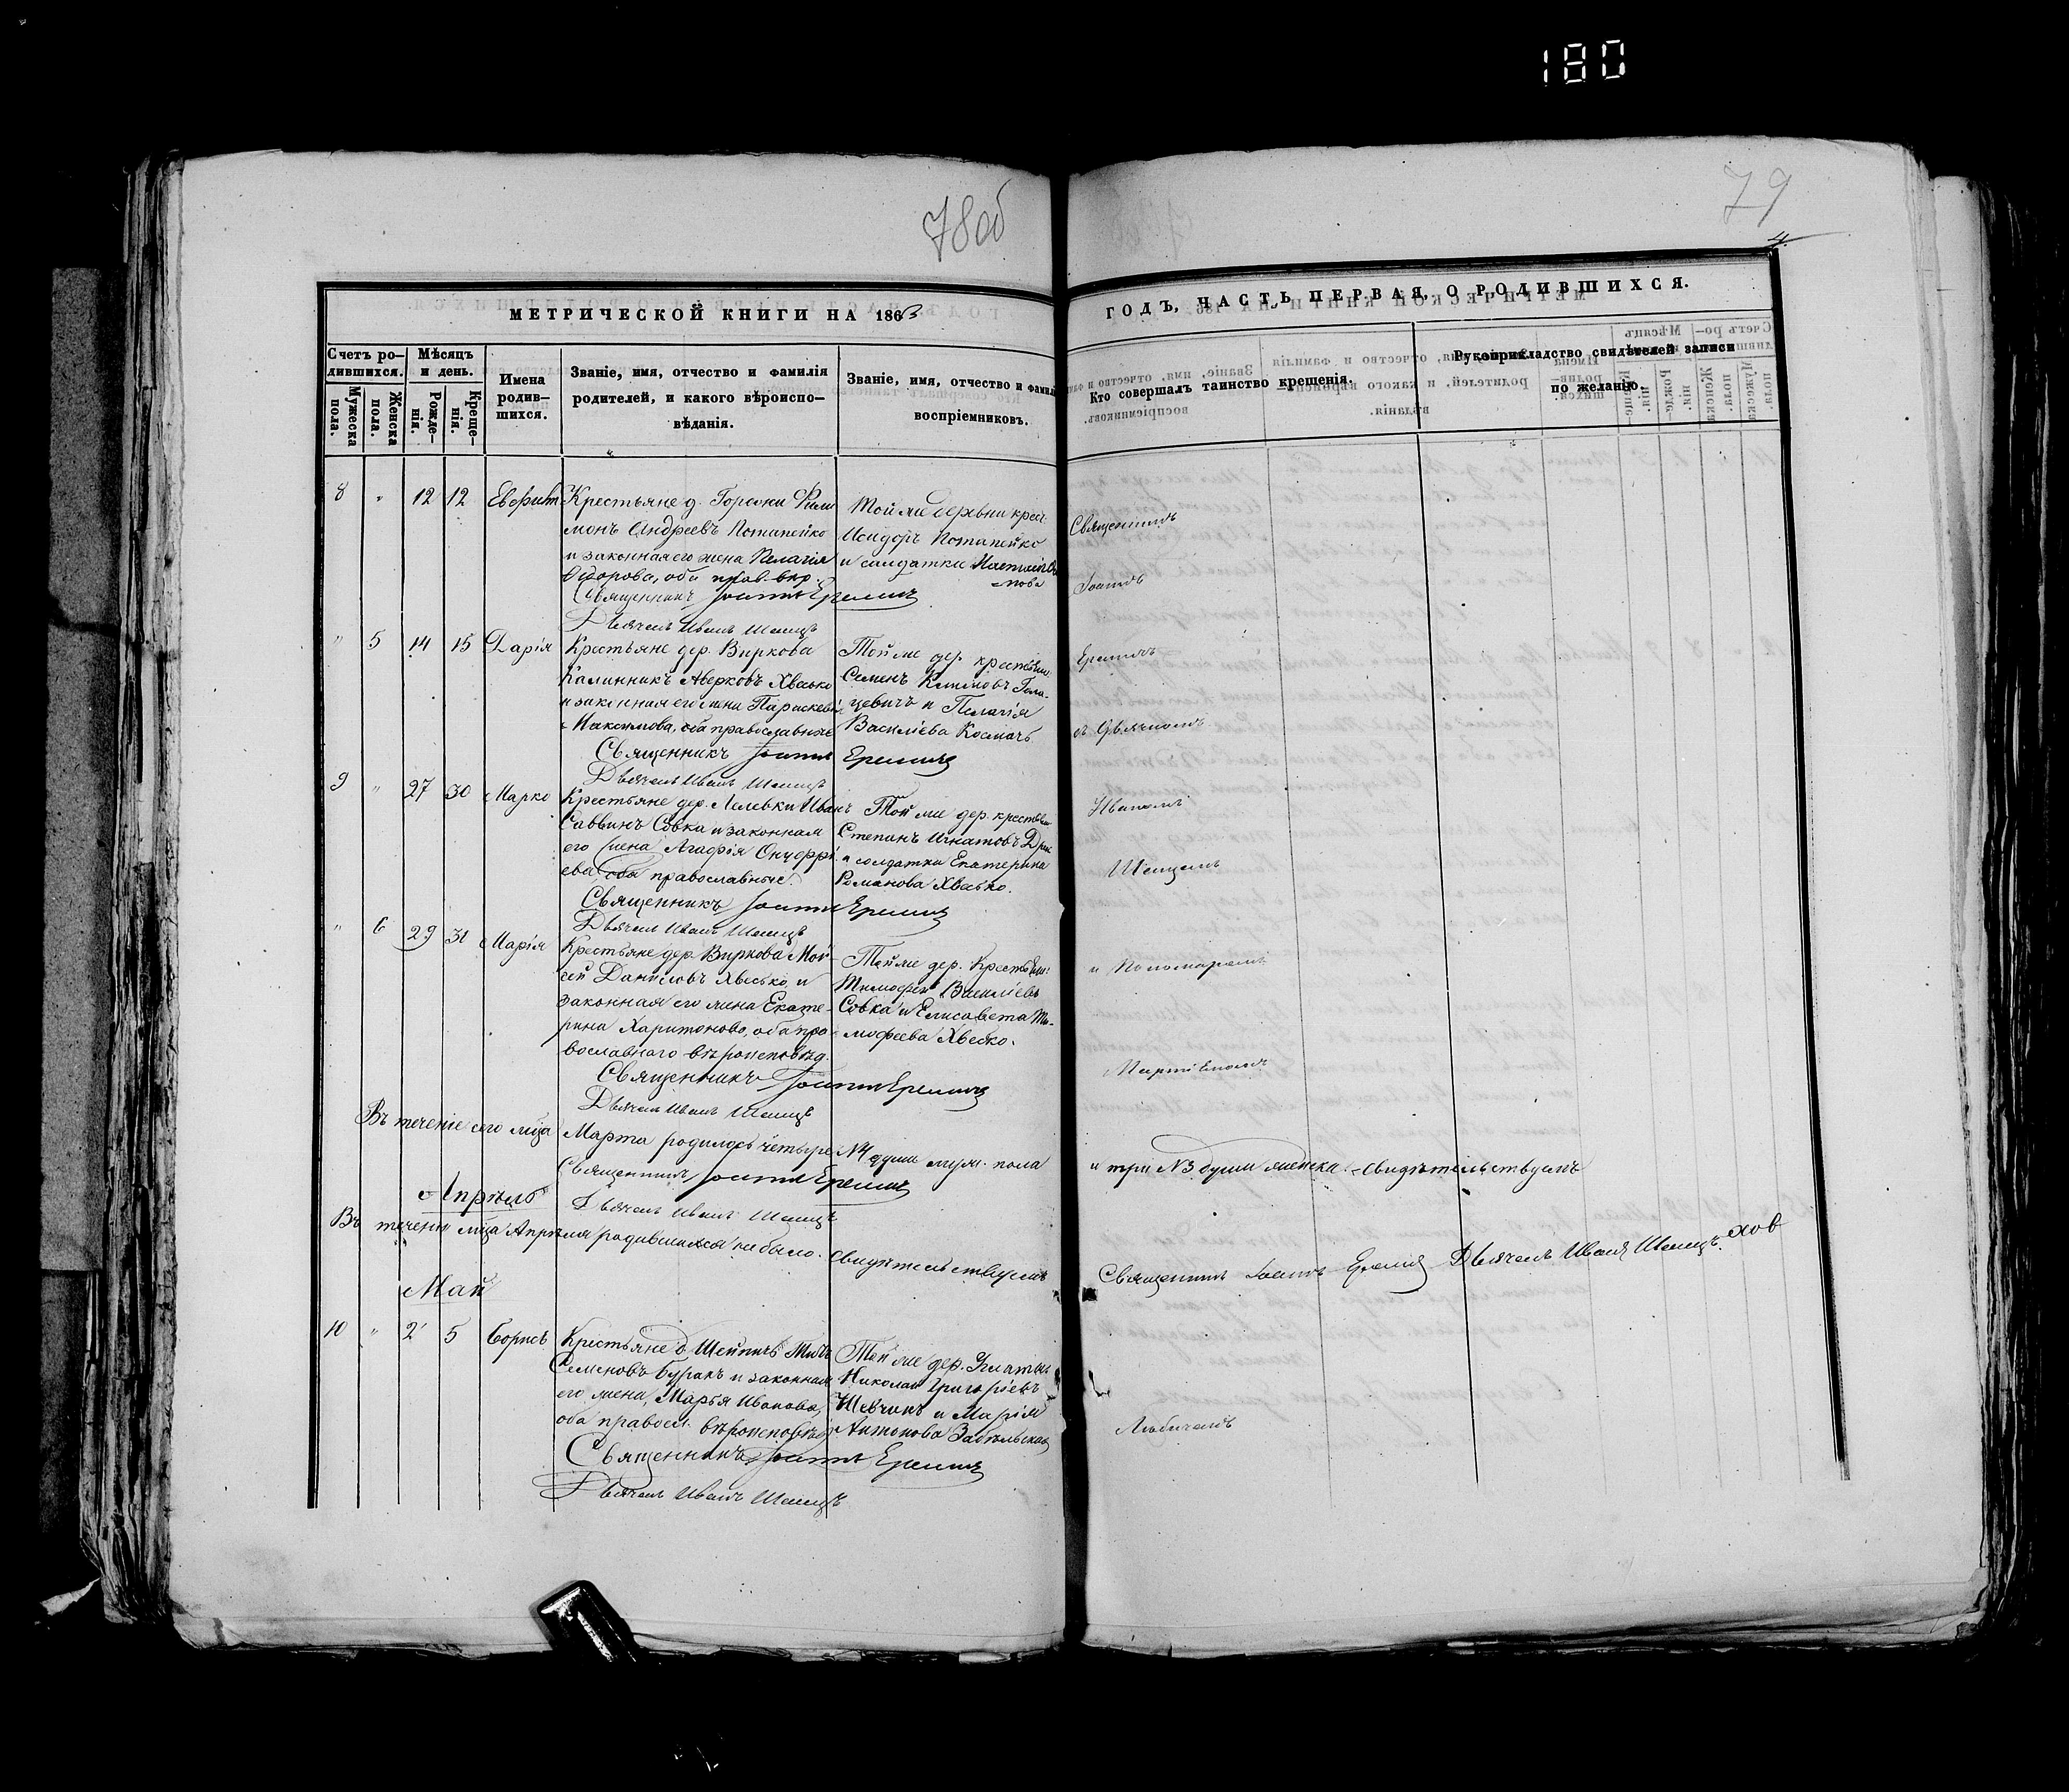 180
78об
79
4.
МЕТРИЧЕСКОЙ КНИГИ НА 1863
ГОДЪ, ЧАСТЬ ПЕРВАЯ, О РОДИВШИХСЯ.
Счетъ ро-
дившихся.
Мужеска
пола.
Женска
пола.
Мѣсяцъ
и день.
Рожде-
нія.
Креще-
нія.
Имена
родив-
шихся.
Званіе, имя, отчество и фамилія
родителей, и какого вѣроиспо-
вѣданія.
Званіе, имя, отчество и фамил
воспріемниковъ.
Кто совершалъ таинство крещенія.
Рукоприкладство свидѣтелей записи
по желанію.
8 " 12 12
Крестьяне д.
монъ Андреевъ Потапейко
и законная его жена Пелагія
Сидорова, оба прав. вѣр.
Священникъ Іоаннъ Еремичъ
Дьячекъ Иванъ Шемецъ
Той же деревни крест.
Исидоръ Потапейко
и солдатка
" 5 14 15 Дарія
Крестьяне дер. Виркова
Калинникъ Аверковъ Хвесько
и законная его жена Параскева
Максимова, оба православные
Священникъ Іоаннъ Еремичъ
Дьячекъ Иванъ Шемецъ
Той же дер. крестьян.
Семенъ Климовъ Гола-
цевичъ и Пелагія
Василіева Космачъ
9 " 27 30 Марко
Крестьяне дер. Лелевки Иванъ
Саввинъ Совка и законная
его жена Агафія Онуфрі-
ева, оба православные.
Священникъ Іоаннъ Еремичъ
Дьячекъ Иванъ Шемецъ
Той же дер. крестьян.
Степанъ Игнатовъ
и солдатка Екатерина
Романова Хвесько.
" 6 29 31 Марія
Крестьяне дер. Виркова Мой-
сей Даниловъ Хвесько, и
законная его жена Екате-
рина Харитонова, оба пра-
вославнаго вѣроисповѣд.
Священникъ Іоаннъ Еремичъ
Дьячекъ Иванъ Шемецъ
Той же дер. Крестьян.
Тимофей Василіевъ
Совка и Елисавета Ти-
мофеева Хвесько.
Священникъ
Іоаннъ
Еремичъ
съ Дьячкомъ
Иваномъ
Шемецемъ
и Пономаремъ
Въ теченіе сего мѣца Марта родилось четыре №4 души муж. пола
и три №3 души женска. свидѣтельствуемъ
Священникъ Іоаннъ Еремичъ
Дьячекъ Иванъ Шемецъ
Апрѣль
Въ теченіи мѣца Апрѣля родившихся не было. свидѣтельствуемъ
Священникъ Іоаннъ Еремичъ Дьячекъ Иванъ Шемецъ.
Май
10 " 2 5 Борисъ
Крестьяне д.
Семеновъ Буракъ и законная
его жена, Марья Иванова,
оба правосл. вѣроисповѣд.
Священникъ Іоаннъ Еремичъ
Дьячекъ Иванъ Шемецъ
Той же дер.
Николай Григоріевъ
и Марія
Антонова